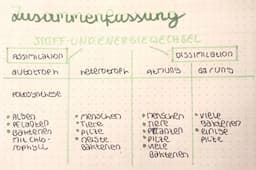 Zusammenfassung
STOFF- UND ENERGIEWECHSEL
Assimilation Dissimilation
autotroph heterotroph Atmung Gärung
Photosynthese
• Algen • Menschen • Menschen • viele
• Pflanzen • Tiere • Tiere Bakterien
• Bakterien • Pilze • Pflanzen • einige
mit Chlo- • meiste • Pilze Pilze
rophyll Bakterien • viele
Bakterien